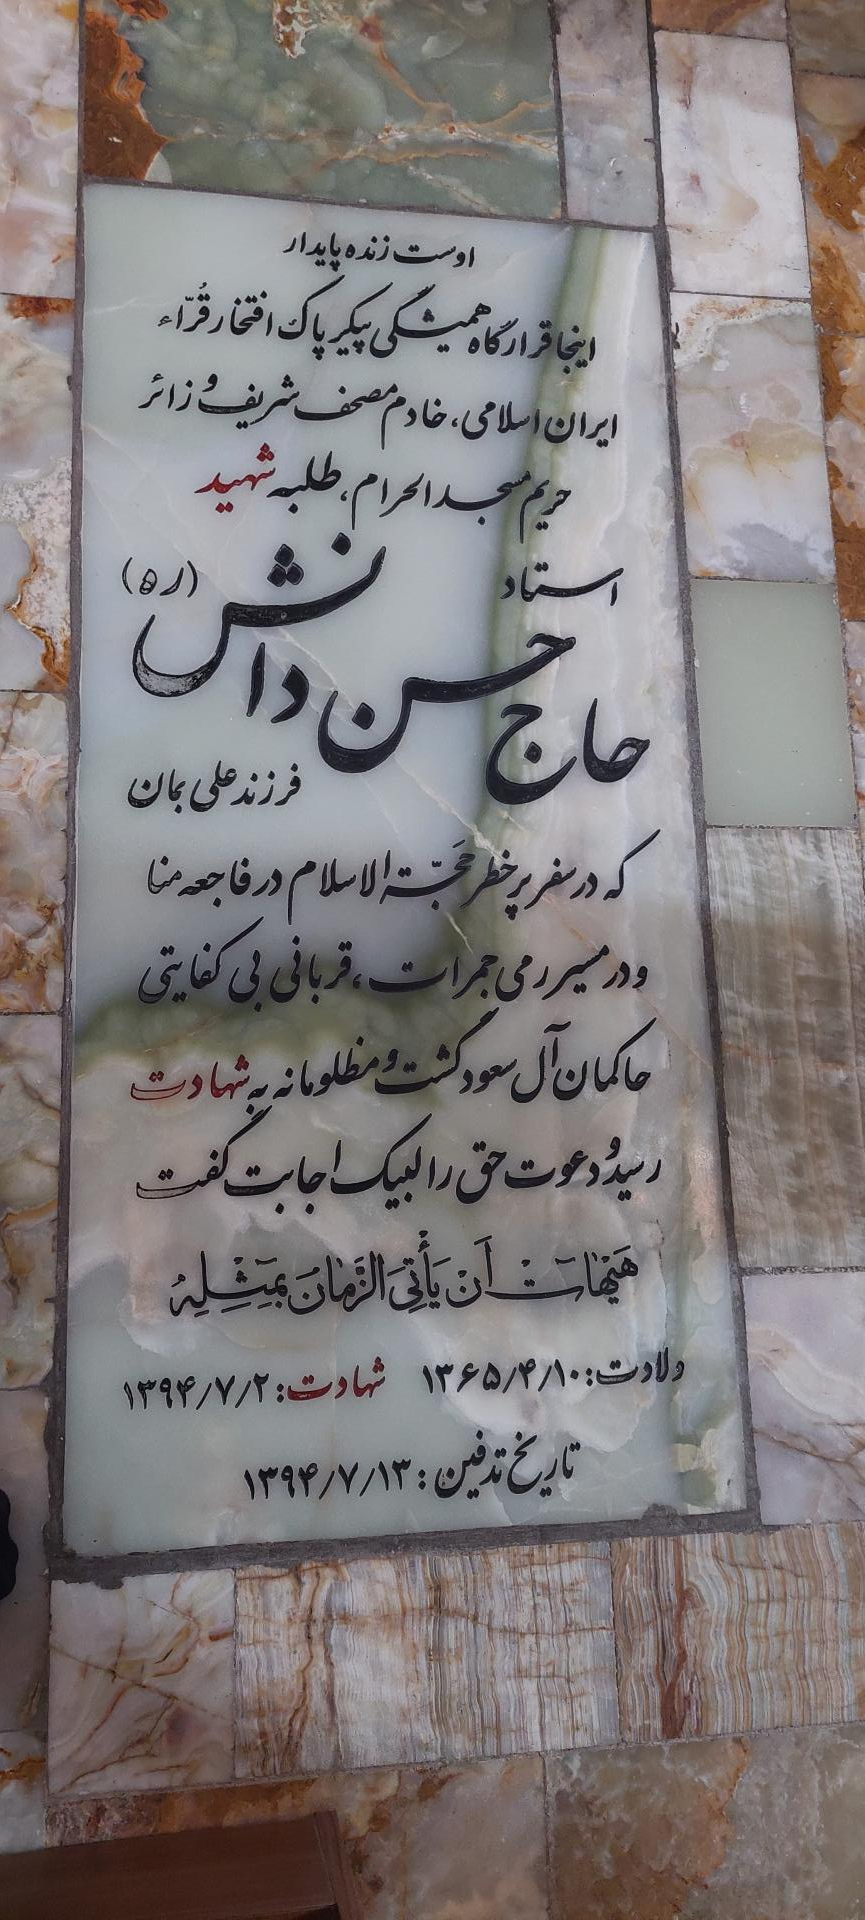 اوست زنده پایدار
اینجا قرارگاه همیشگی پیکر پاک افتخار قُرّاء
ایران اسلامی، خادم مصحف شریف و زائر
حریم مسجد الحرام، طلبه شهید
استاد
حاج حسن دانش (ره)
فرزند علی بمان
که در سفر پرخطر حَجّة الاسلام در فاجعه منا
و در مسیر رمی جمرات، قربانی بی کفایتی
حاکمان آل سعود گشت و مظلومانه به شهادت
رسید و دعوت حق را لبیک اجابت گفت
هَیْهاتَ أَنْ یَأْتِیَ الزَّمانُ بِمِثْلِهِ
ولادت: ۱۳۶۵/۴/۱۰ شهادت: ۱۳۹۴/۷/۲
تاریخ تدفین: ۱۳۹۴/۷/۱۳